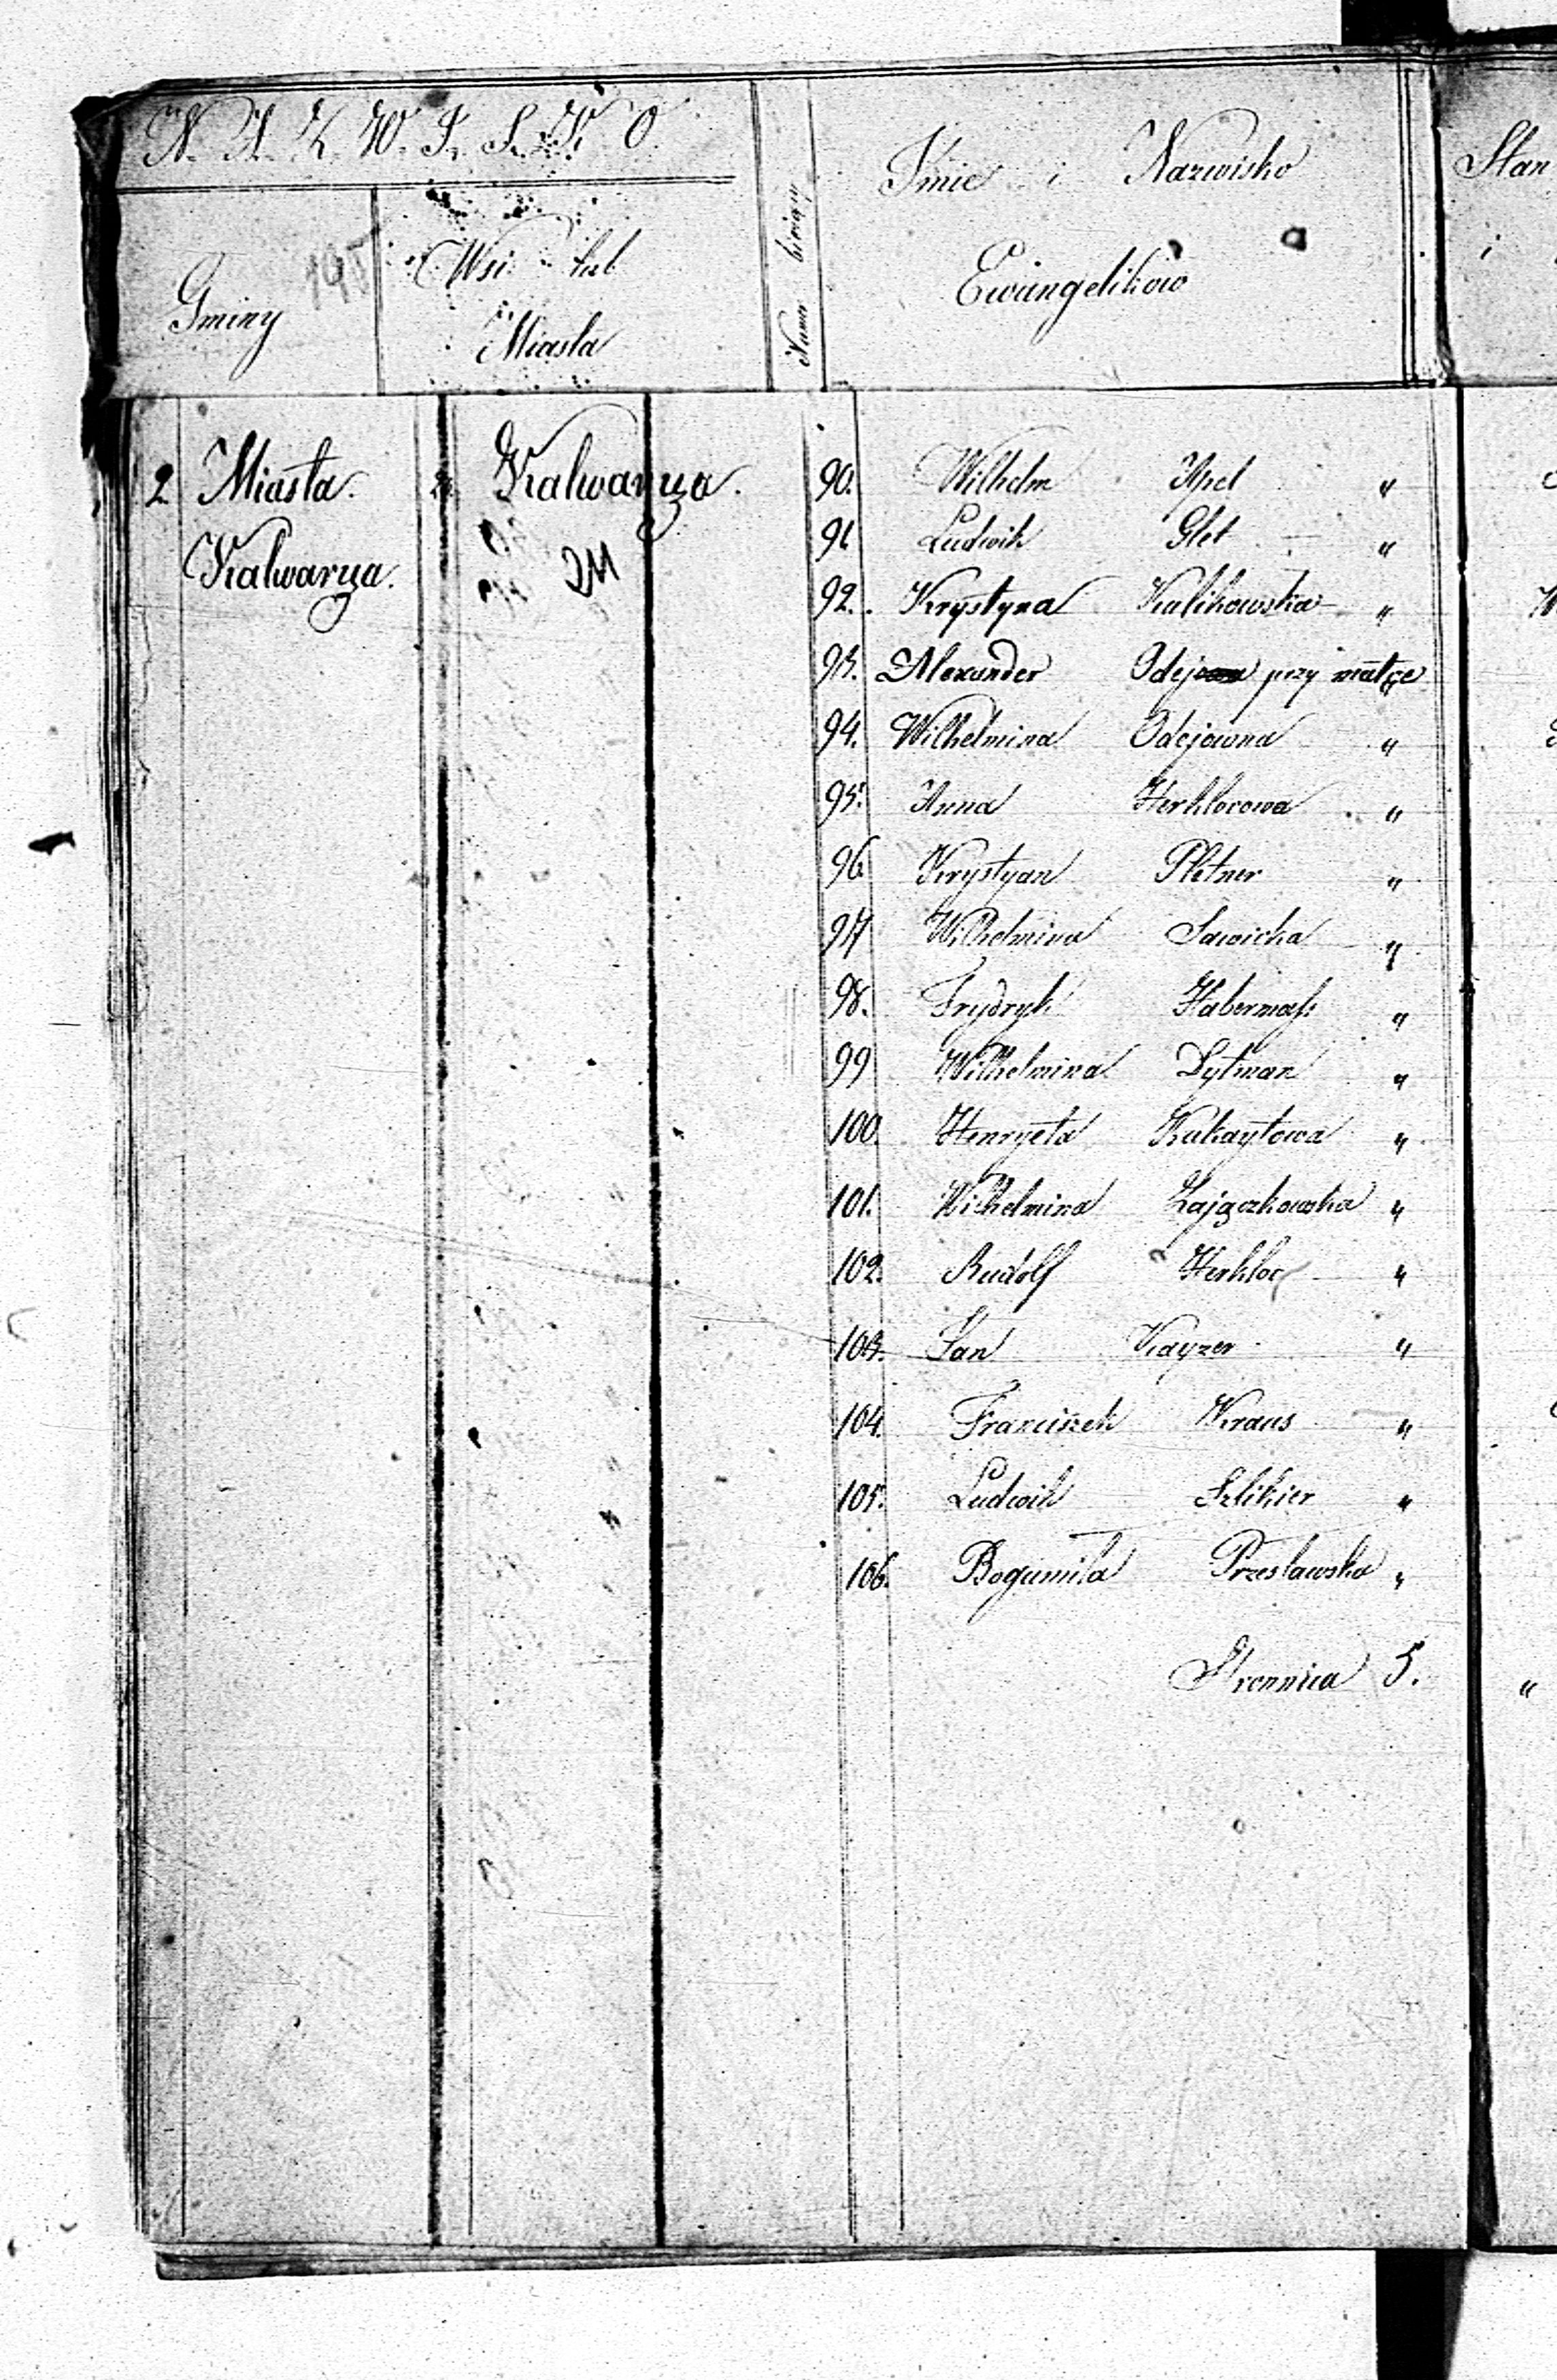 N. A. Z. W. I. S. K. O.
Gminy
Wsi lub
Miasta
Numer bieżący
Imie i Nazwisko
Ewangelikow
Stan
i
2 Miasta
Kalwarya.
2. Kalwarya.
90. Wilhelm Apel "
91 Ludwik Glet "
92. Krystyna Kulikowska "
93. Alexander Odej przy matce
94. Wilhelmina Odejowna "
95. Anna Herklocowa "
96 Krystyan Pletner "
97 Wilhelmina Sawicka "
98. Frydryk Habermass "
99 Wilhelmina Dytman "
100. Henryeta Kukaytowa "
101. Wilhelmina Zajączkowska "
102. Rudolf Herkloc "
103. Jan Kayzer "
104. Franciszek Kraus "
105. Ludwik Szlikier "
106. Bogumila Przeslawska "
Stronnica 5. "